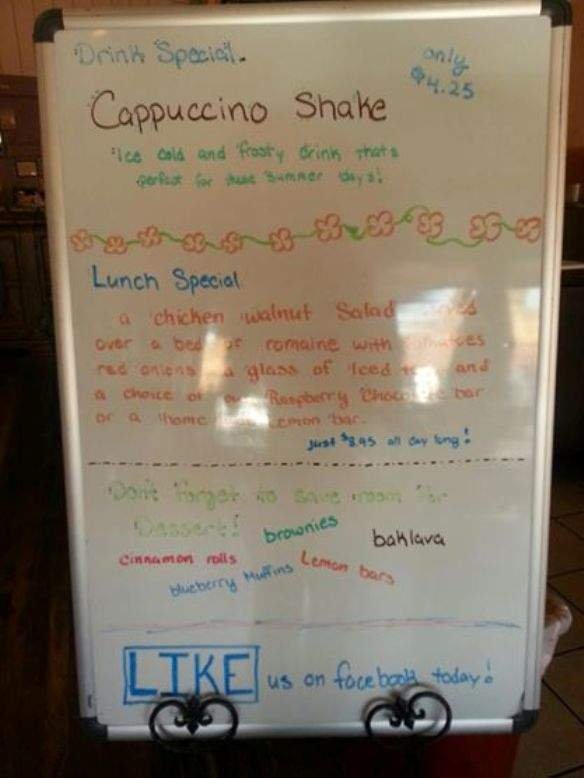 Drink Special.
only
$4.25
Cappuccino Shake
"Ice cold and frosty drink thats
perfect for these summer days!
Lunch Special
a chicken walnut Salad
over a bed of romaine with tomatoes
red onions a glass of Iced tea and
a choice of our Raspberry Chocolate bar
or a home lemon bar.
just $8.95 all day long!
Don't forget to save room for
Dessert!
brownies
baklava
cinnamon rolls
Lemon bars
blueberry Muffins
LIKE us on facebook today!